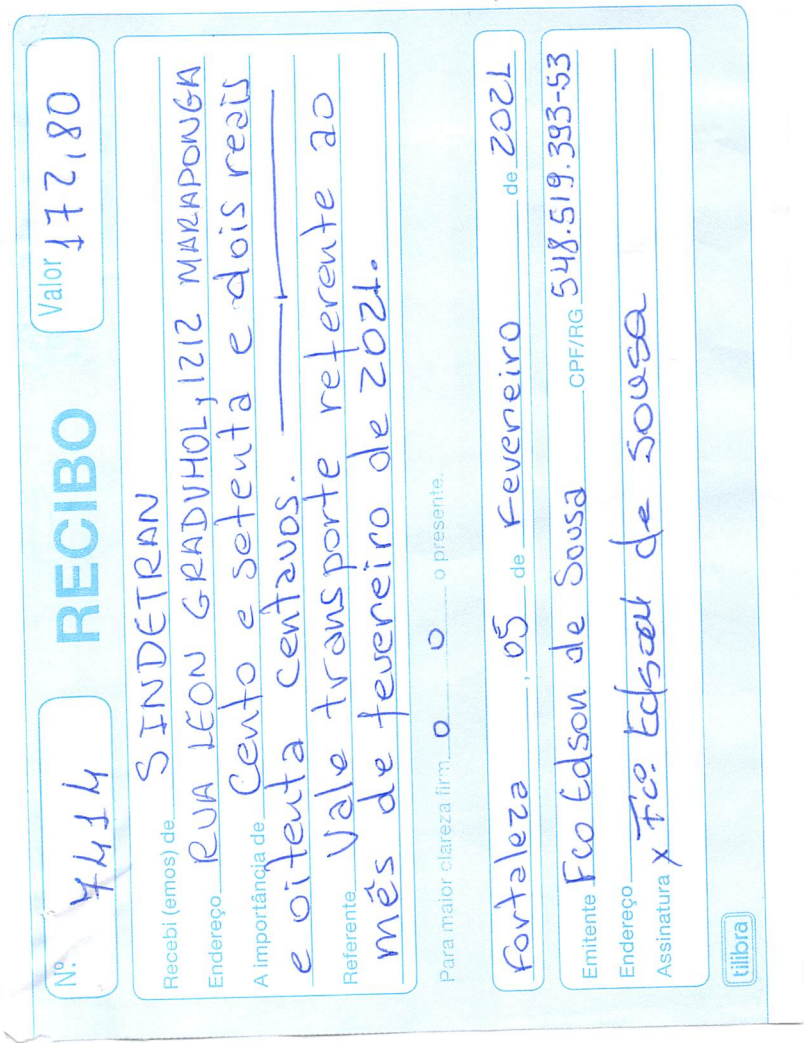 Nº 7414 RECIBO Valor 172,80
Recebi (emos) de SINDETRAN
Endereço RUA LEON GRADVHOL, 1212 MARAPONGA
A importância de Cento e setenta e dois reais
e oitenta centavos.
Referente Vale transporte referente ao
mês de fevereiro de 2021.
Para maior clareza firm o o o presente.
Fortaleza, 05 de Fevereiro de 2021
Emitente Fco Edson de Sousa CPF/RG 548.519.393-53
Endereço
Assinatura x Fco. Edson de Sousa
tilibra